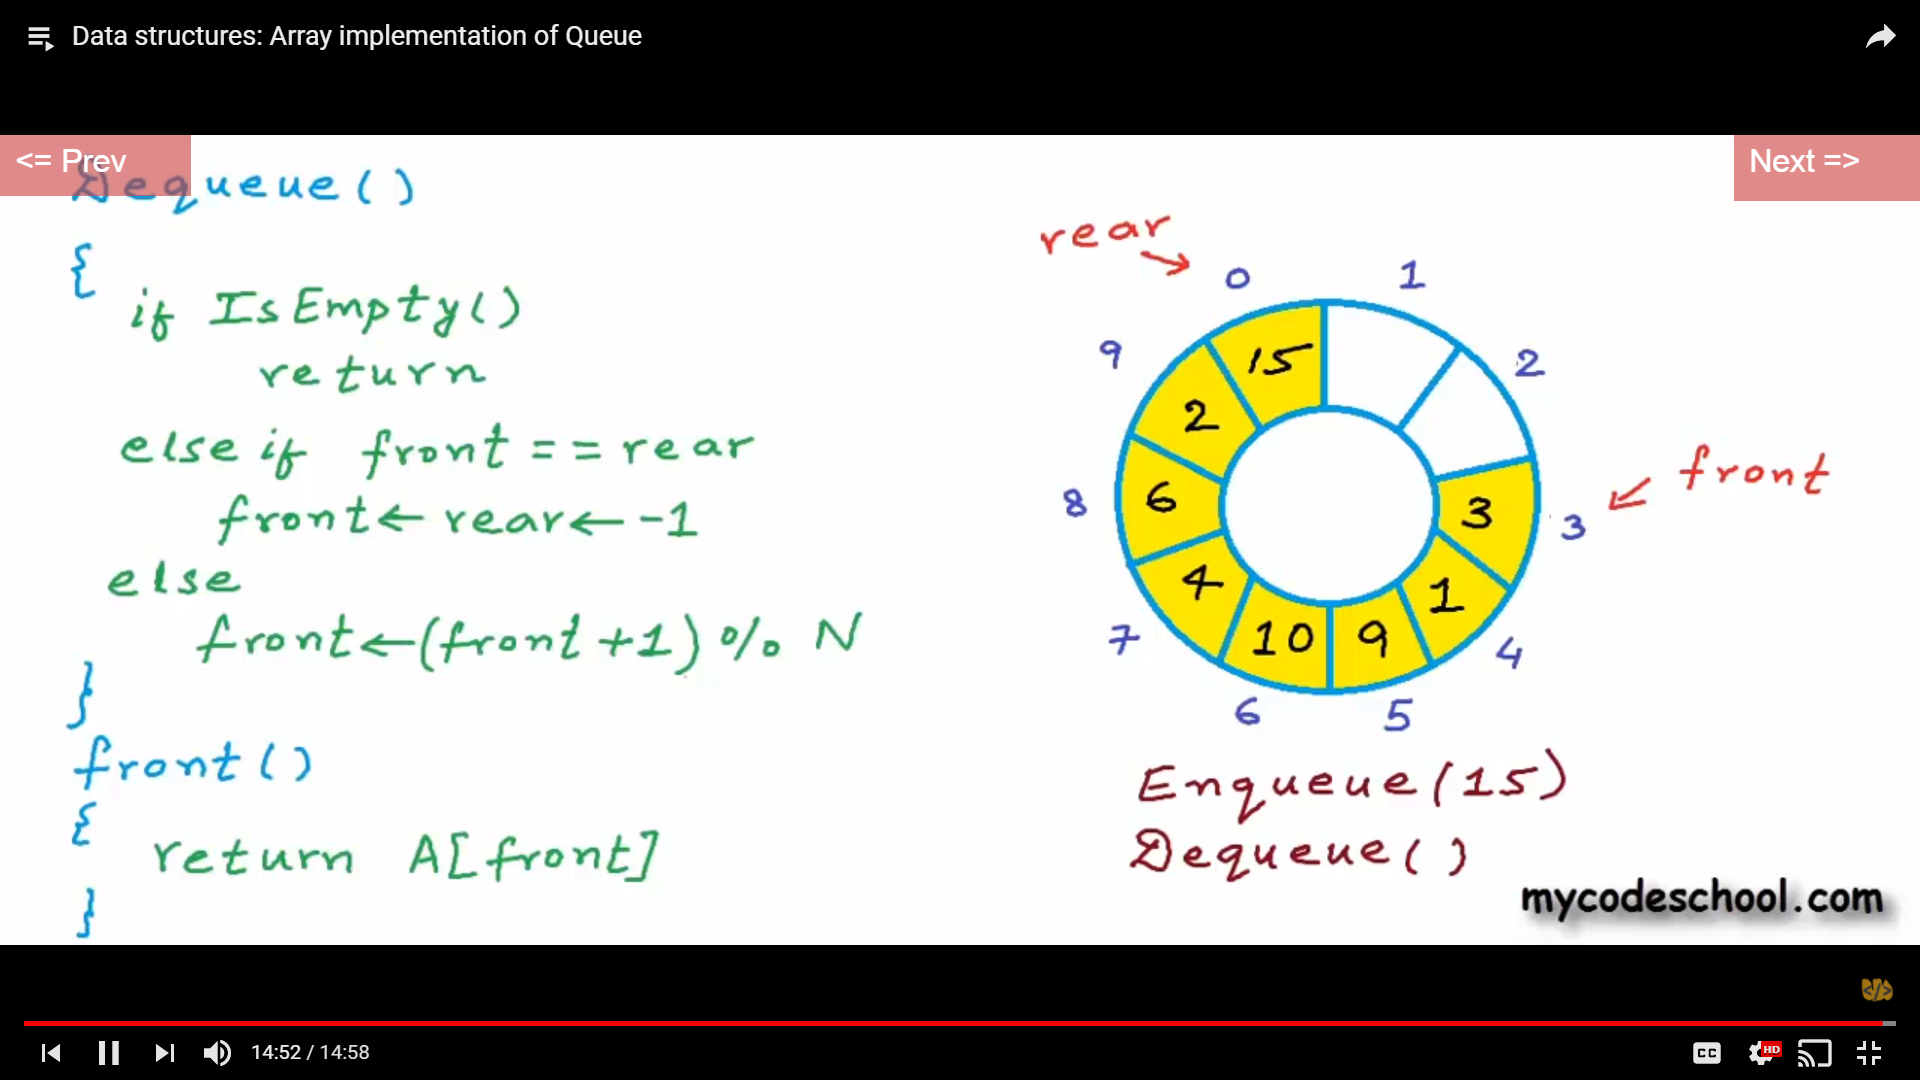 Data structures: Array implementation of Queue
<= Prev
Next =>
Dequeue()
{
if IsEmpty()
return
else if front == rear
front ← rear ← -1
else
front ← (front + 1) % N
}
front()
{
return A[front]
}
rear
0
1
2
3
4
5
6
7
8
9
front
15
2
6
4
10
9
1
3
Enqueue(15)
Dequeue()
mycodeschool.com
</>
14:52 / 14:58
CC
HD